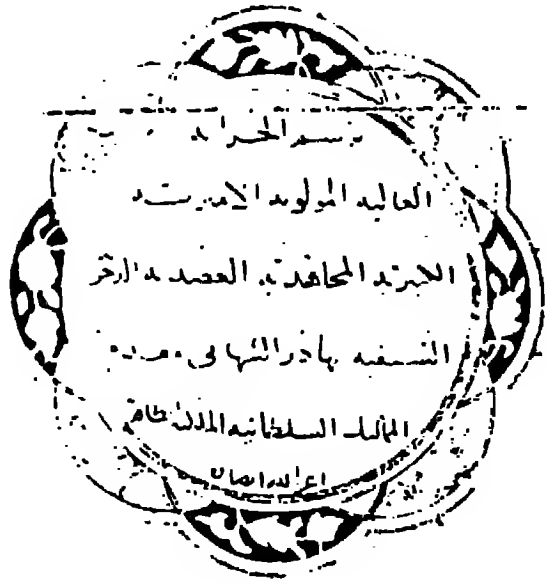 برسم الخزانه
العاليه المولويه الاميريه
الكبيريه المجاهديه العضديه الذخريه
السيفيه بهادر الشهابى مقدم
المماليك السلطانيه الملكى الظاهرى
اعز الله انصاره